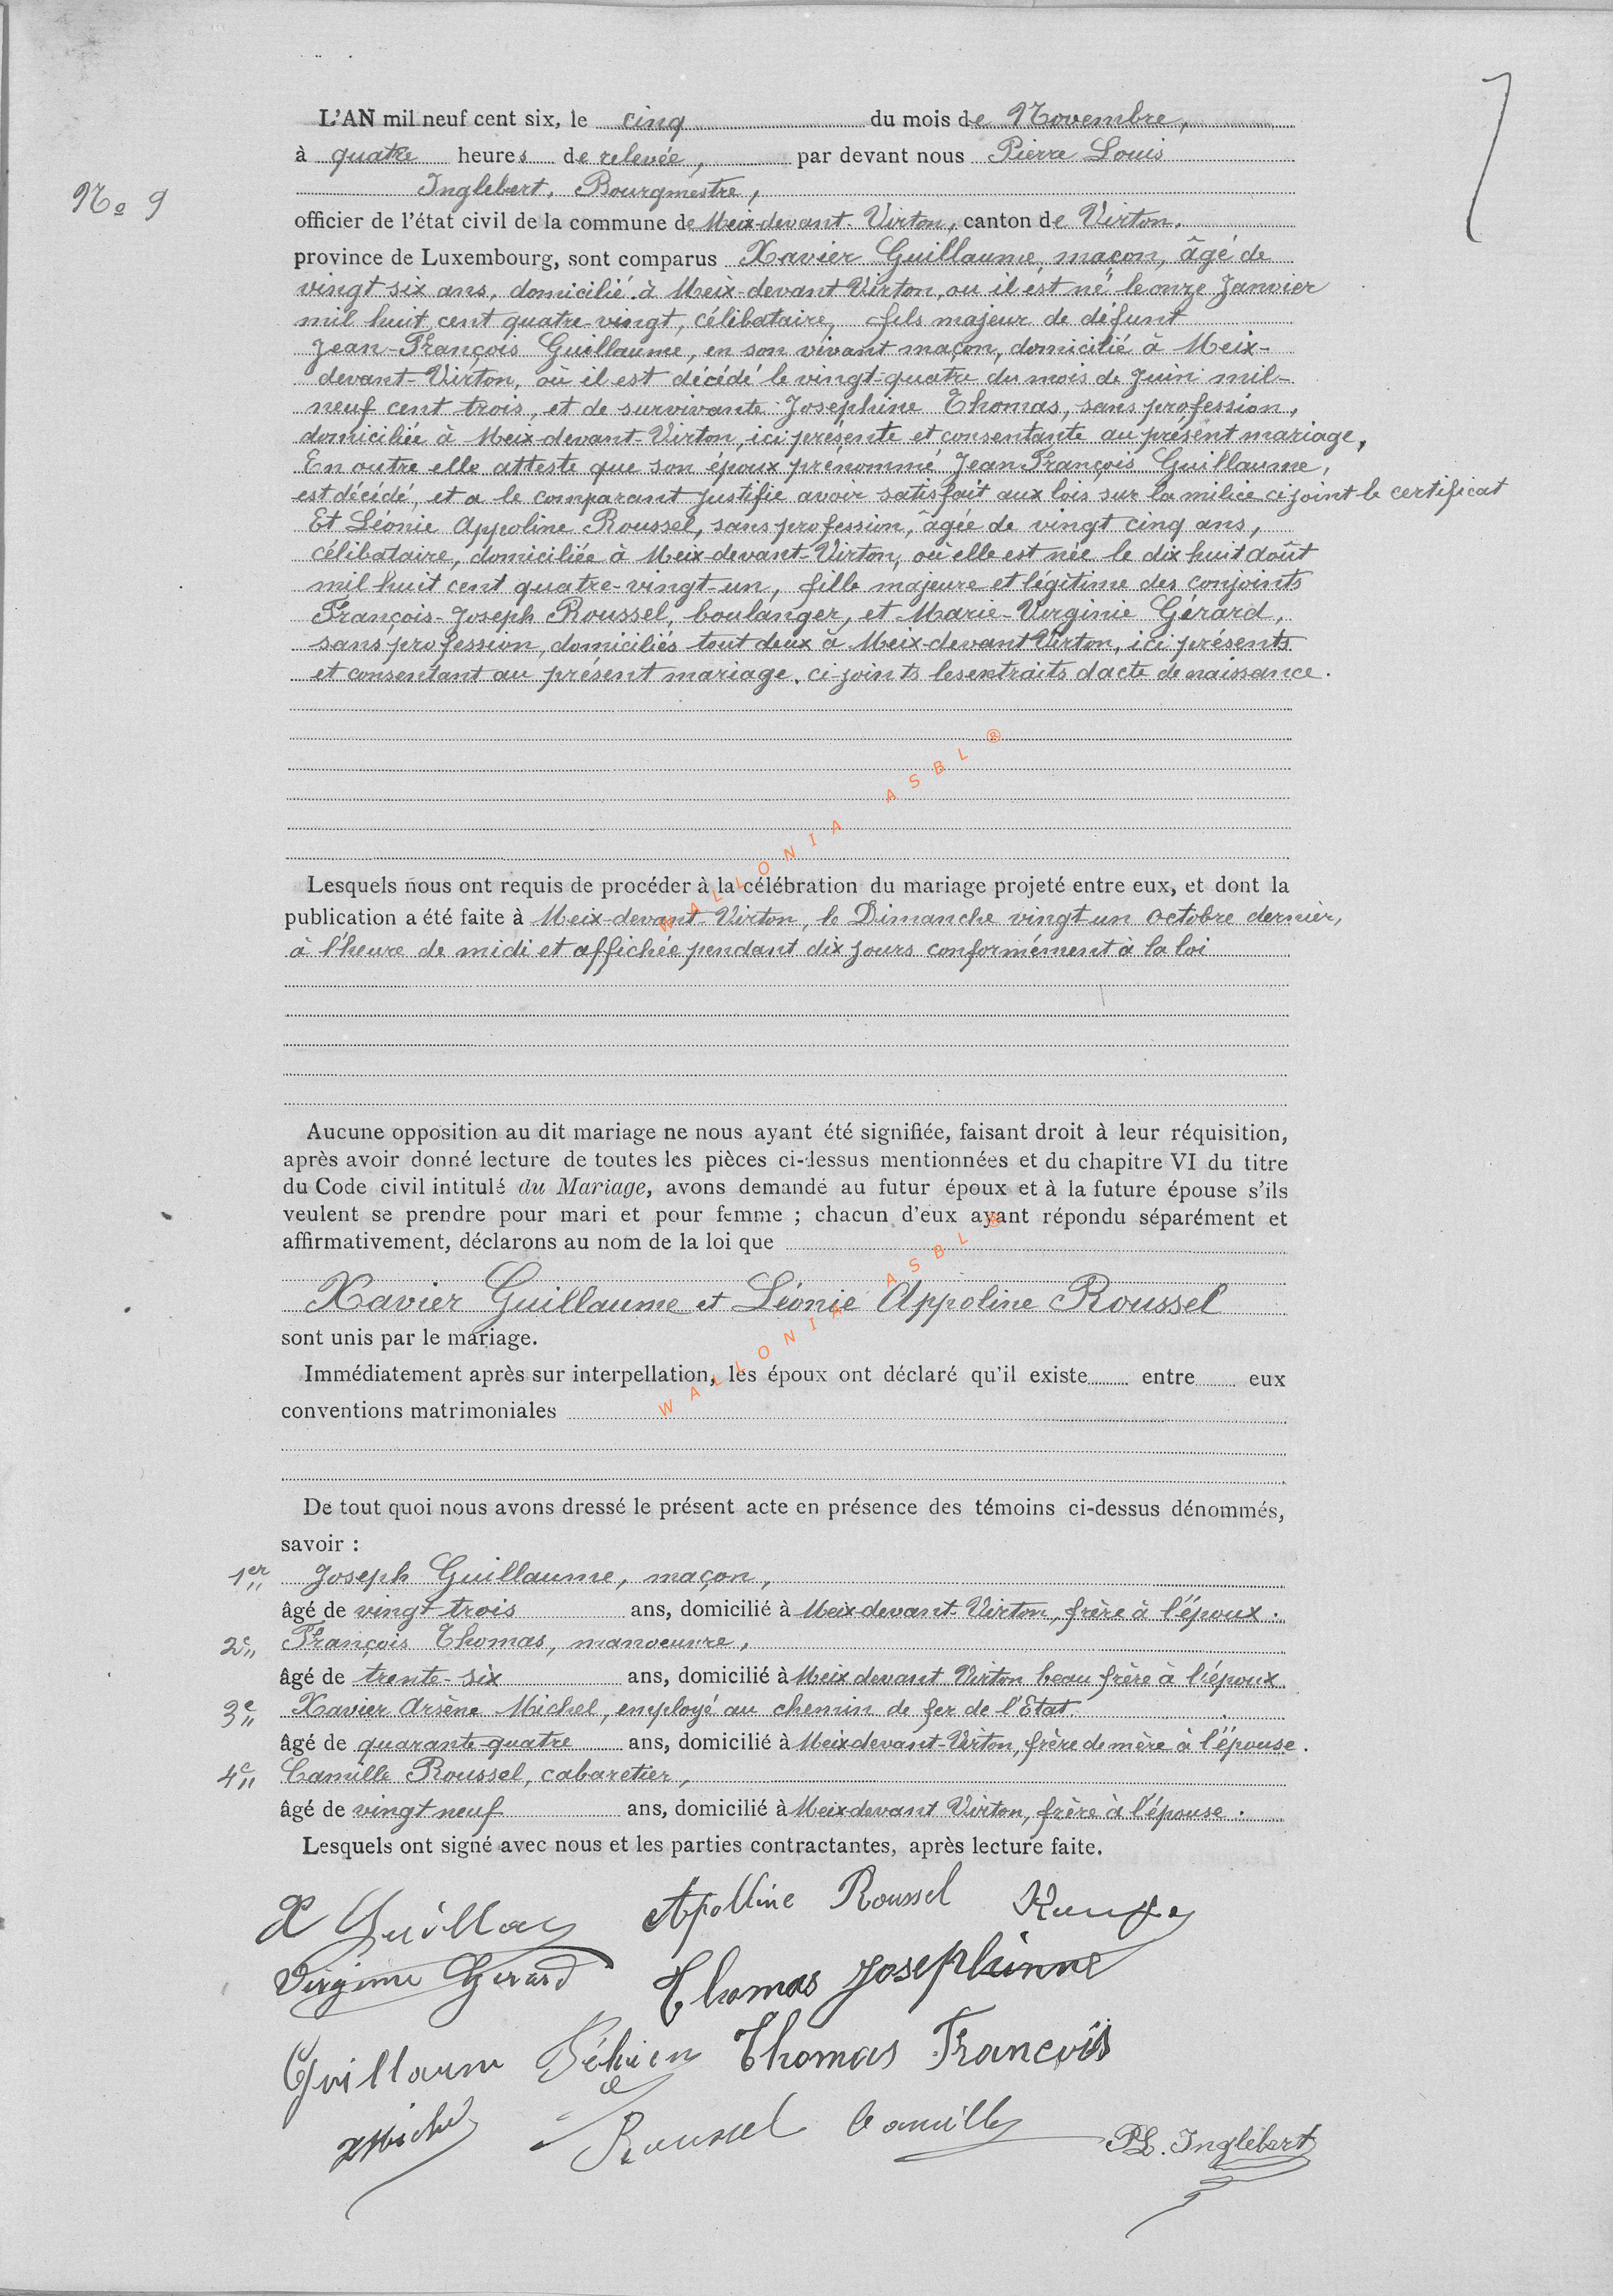 L'AN mil neuf cent six, le cinq du mois de Novembre,
à quatre heures de relevée, par devant nous Pierre Louis
No 9
Inglebert, Bourgmestre,
officier de l'état civil de la commune de Meix-devant-Virton, canton de Virton,
province de Luxembourg, sont comparus Xavier Guillaume, maçon, âgé de
vingt six ans, domicilié à Meix-devant Virton, ou il est né le onze Janvier
mil huit cent quatre vingt, célibataire, fils majeur de défunt
Jean-François Guillaume, en son vivant maçon, domicilié à Meix-
devant-Virton, où il est décédé le vingt-quatre du mois de Juin mil-
neuf cent trois, et de survivante Joséphine Thomas, sans profession,
domiciliée à Meix-devant-Virton, ici présente et consentante au présent mariage,
En outre elle atteste que son époux prénommé Jean François Guillaume,
est décédé, et a le comparant justifie avoir satisfait aux lois sur la milice ci joint le certificat
Et Léonie Appoline Roussel, sans profession, âgée de vingt cinq ans,
célibataire, domiciliée à Meix-devant-Virton, où elle est née le dix huit août
mil huit cent quatre-vingt-un, fille majeure et légitime des conjoints
François-Joseph Roussel, boulanger, et Marie-Virginie Gérard,
sans profession, domiciliés tout deux à Meix-devant Virton, ici présents
et consentant au présent mariage. ci-joints les extraits d'acte de naissance.
Lesquels nous ont requis de procéder à la célébration du mariage projeté entre eux, et dont la
publication a été faite à Meix-devant-Virton, le Dimanche vingt un Octobre dernier,
à l'heure de midi et affichée pendant dix jours conformément à la loi
WALLONIA ASBL ®
Aucune opposition au dit mariage ne nous ayant été signifiée, faisant droit à leur réquisition,
après avoir donné lecture de toutes les pièces ci-dessus mentionnées et du chapitre VI du titre
du Code civil intitulé du Mariage, avons demandé au futur époux et à la future épouse s'ils
veulent se prendre pour mari et pour femme ; chacun d'eux ayant répondu séparément et
affirmativement, déclarons au nom de la loi que
Xavier Guillaume et Léonie Appoline Roussel
sont unis par le mariage.
Immédiatement après sur interpellation, les époux ont déclaré qu'il existe entre eux
conventions matrimoniales
WALLONIA ASBL ®
De tout quoi nous avons dressé le présent acte en présence des témoins ci-dessus dénommés,
savoir :
1er Joseph Guillaume, maçon,
âgé de vingt trois ans, domicilié à Meix-devant-Virton, frère à l'époux.
2e François Thomas, manoeuvre,
âgé de trente-six ans, domicilié à Meix devant Virton beau frère à l'époux
3e Xavier Arsène Michel, employé au chemin de fer de l'Etat.
âgé de quarante-quatre ans, domicilié à Meix devant-Virton, frère de mère à l'épouse.
4e Camille Roussel, cabaretier,
âgé de vingt neuf ans, domicilié à Meix-devant Virton, frère à l'épouse.
Lesquels ont signé avec nous et les parties contractantes, après lecture faite.
X Guillau Apolline Roussel
Virginie Gerard Thomas Josephinne
Guillaume Thomas Francois
Roussel Camille PL. Inglebert